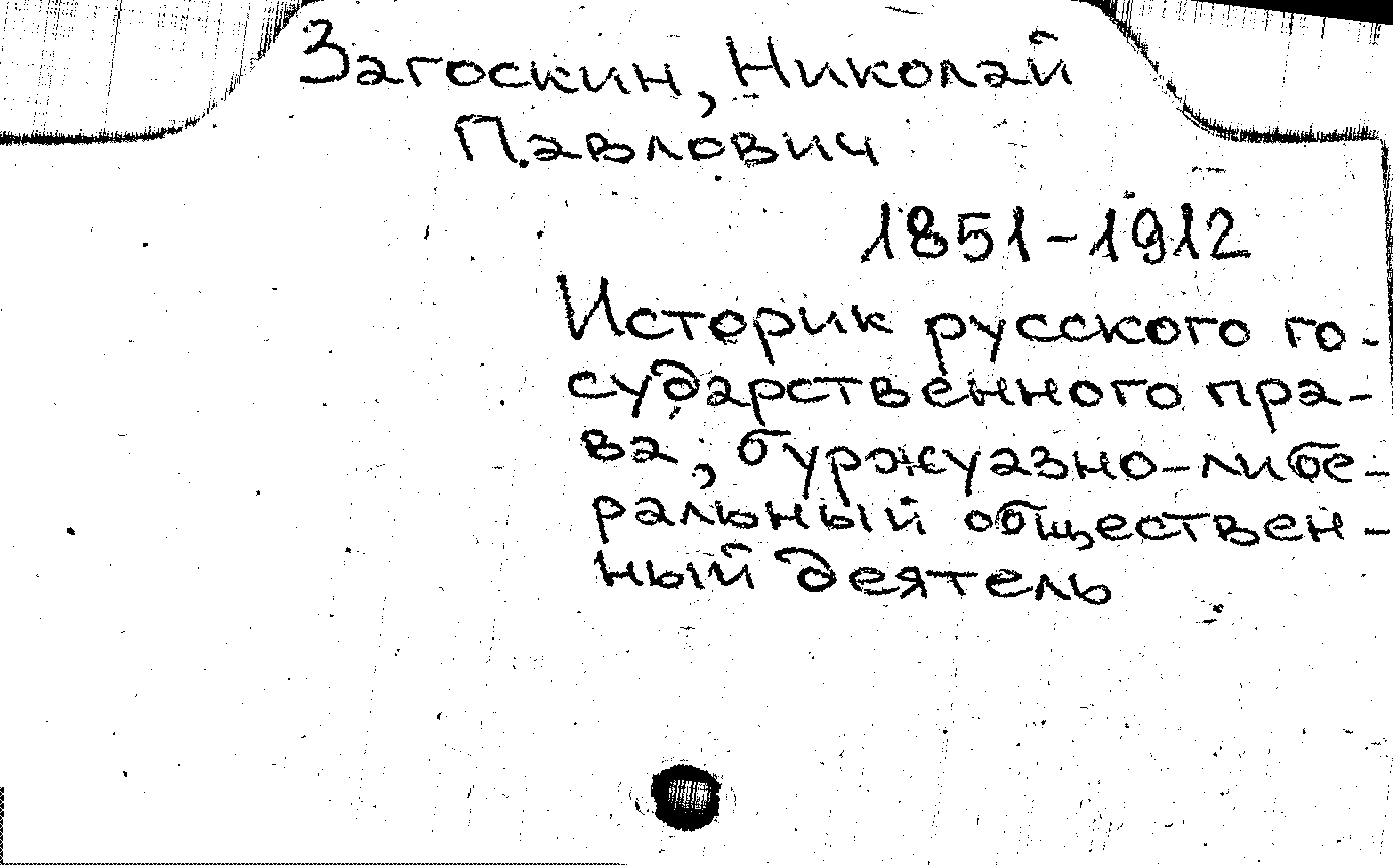 Загоскин, Николай
Павлович
1851-1912
Историк русского го-
сударственного пра-
ва, буржуазно-либе-
ральный обществен-
ный деятель